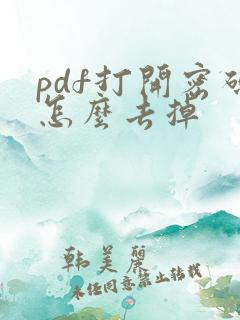 pdf打開密碼
怎麼去掉
韩美麗
未经同意禁止转载